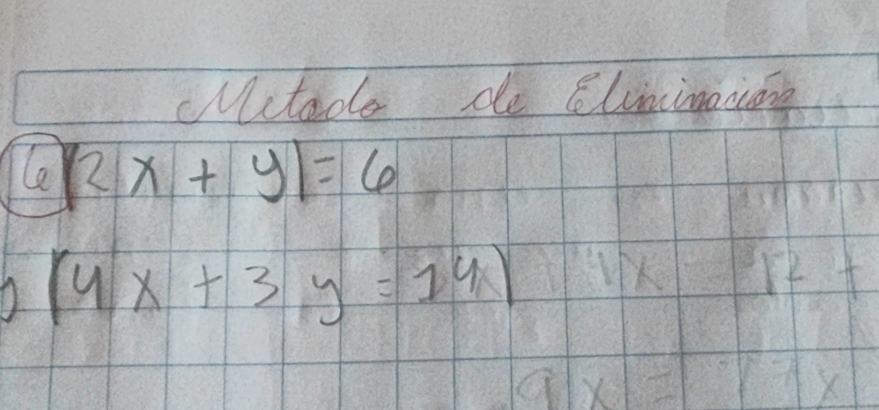 Metodo de Eliminación
6 (2x + y) = 6
(4x + 3y = 14)